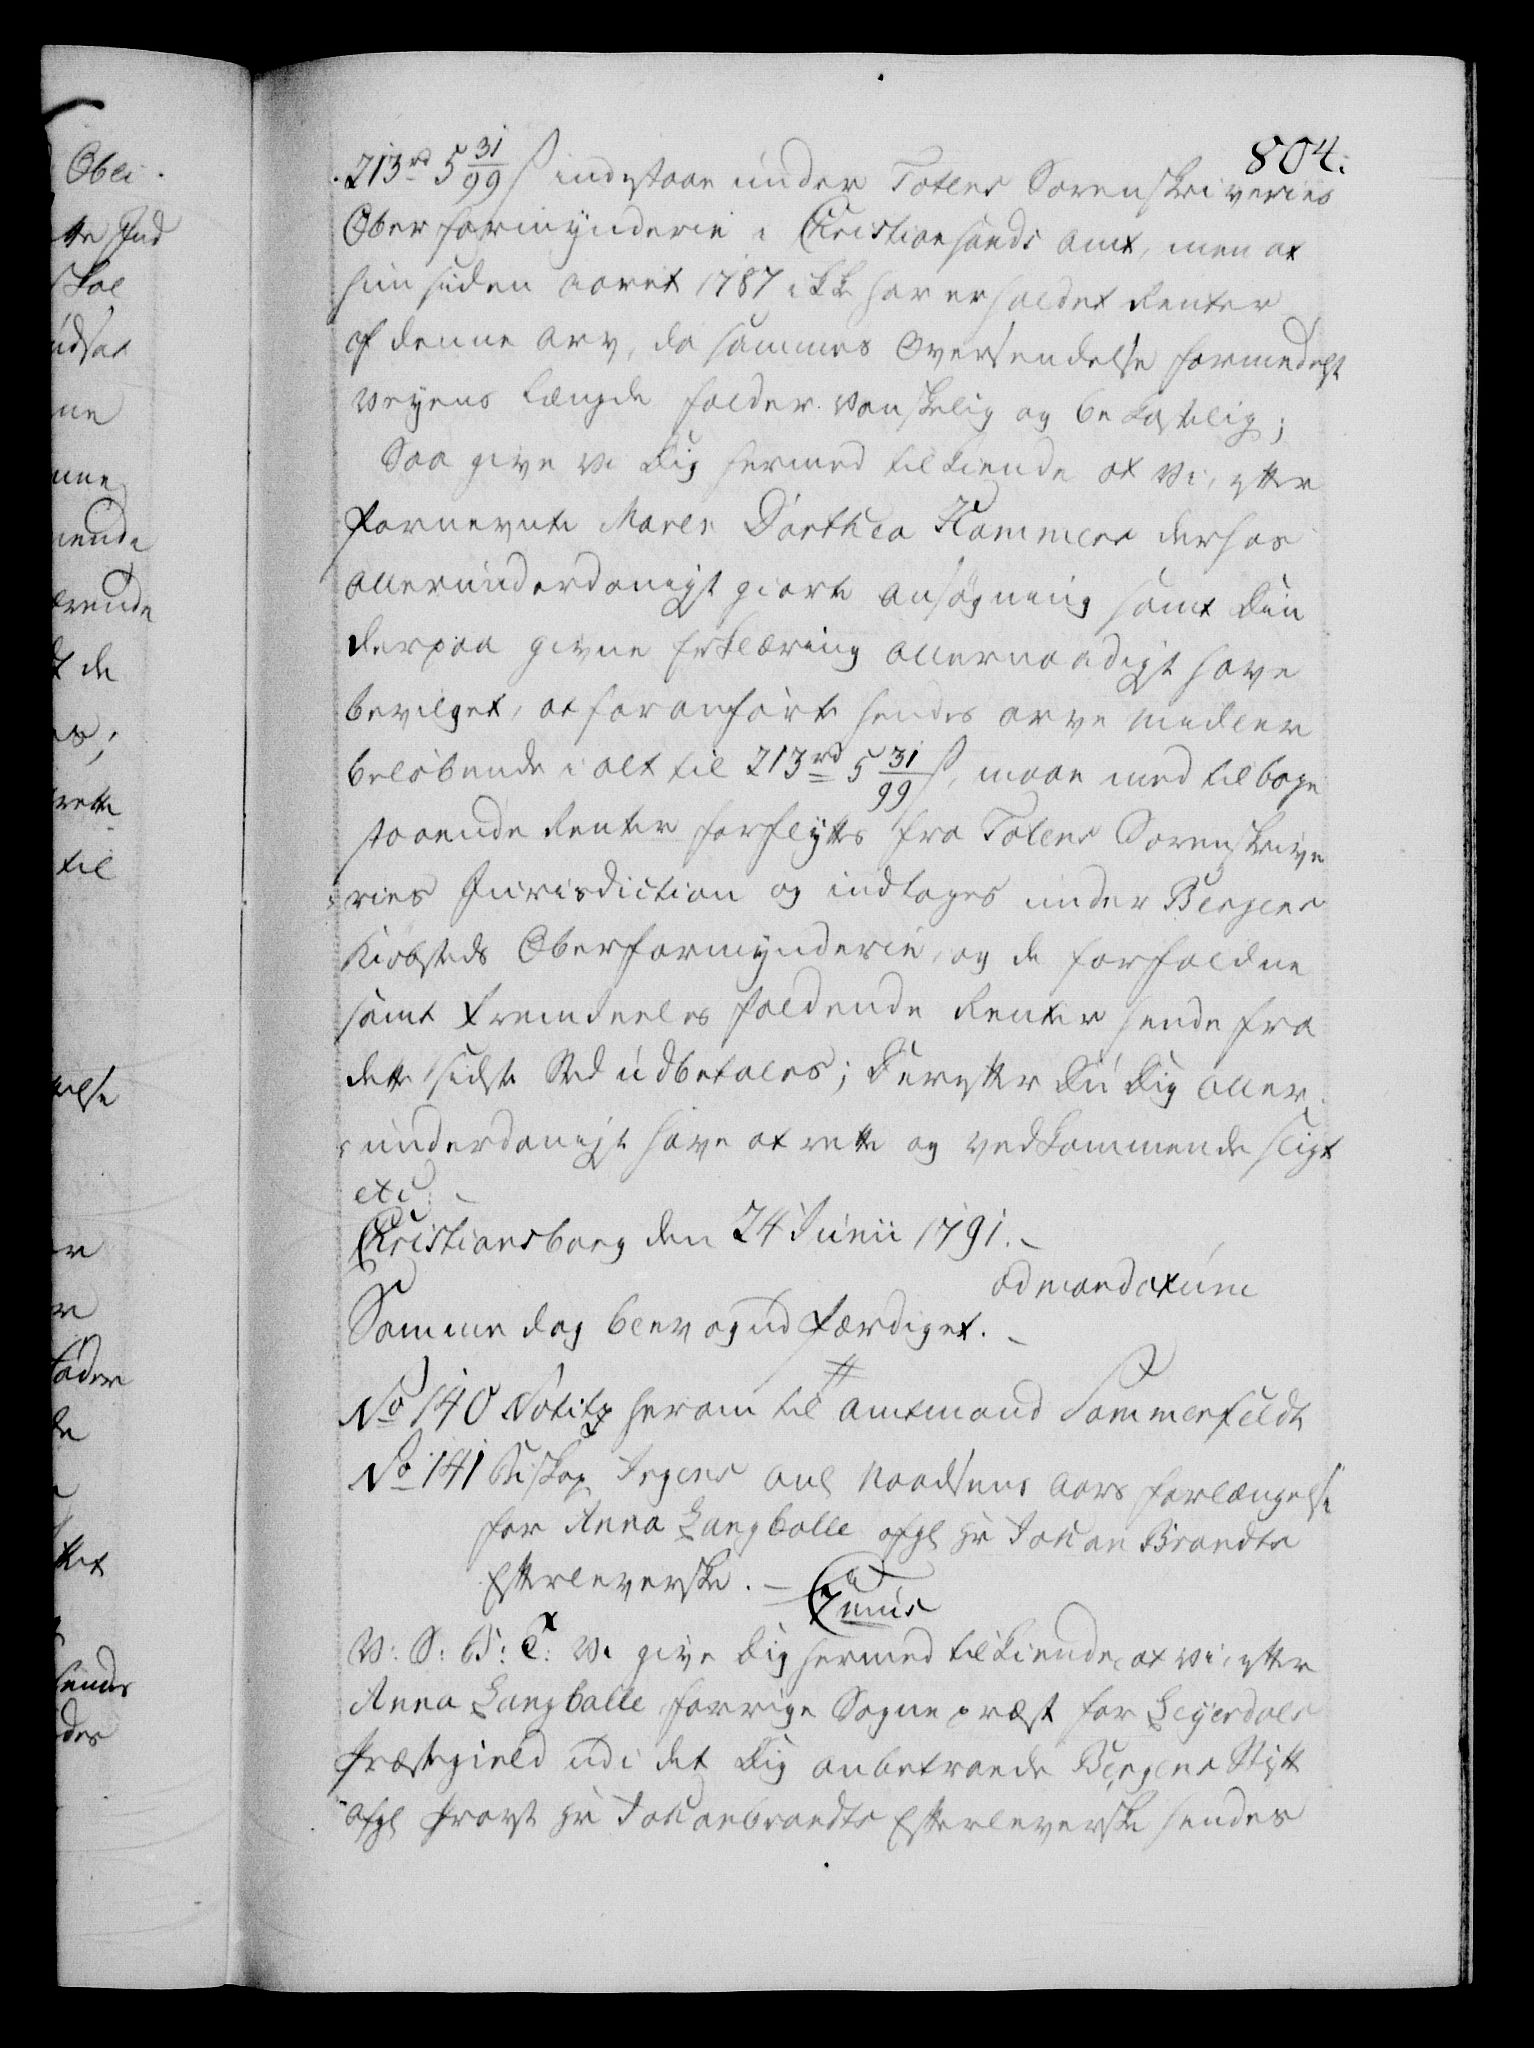 804.
213 rd 5 31/99 ß indestaae under Totens Sorenskriveries
Oberformynderie i Christiansands Amt, men at
hun siden aaret 1787 ikke har erholdet Renter
af denne Arv, da sammes Oversendelse formedelst
Veyens Længde falder vanskelig og bekostelig;
Saa give Vi Dig hermed tilkiende at Vi, efter
fornevnte Maren Dorthea Hammers derhos
allerunderdanigst giorte Ansøgning samt Din
derpaa givne Erklæring allernaadigst have
bevilget, at foranførte hendes Arve Midler
beløbende i alt til 213 rd 5 31/99 ß, maae med tilbage
staaende Renter forflyttes fra Totens Sorenskrive
ries Jurisdiction og indtages under Bergens
Kiøbsteds Oberformynderie, og de forfaldne
samt fremdeeles faldende Renter hende fra
dette sidste Sted udbetales; Derefter Du Dig aller
underdanigst have at rette og vedkommende sligt
etc:
Christiansborg den 24 Junii 1791.
ad mandatum
Samme dag blev og udfærdiget.
No 140 Notitz herom til Amtmand Sommerfeldt
No 141 Biskop Irgens ang Naadsens Aars Forlængelse
for Anna Langballe afg Hr Johan Brandts
Efterleverske.
V: S: B: T: Vi give Dig hermed tilkiende, at Vi, efter
Anna Langballe forrige Sogne præst for Leyerdals
Præstegield udi det Dig anbetroede Bergens Stift
afg Provst Hr Johan brandts Efterleverske hendes